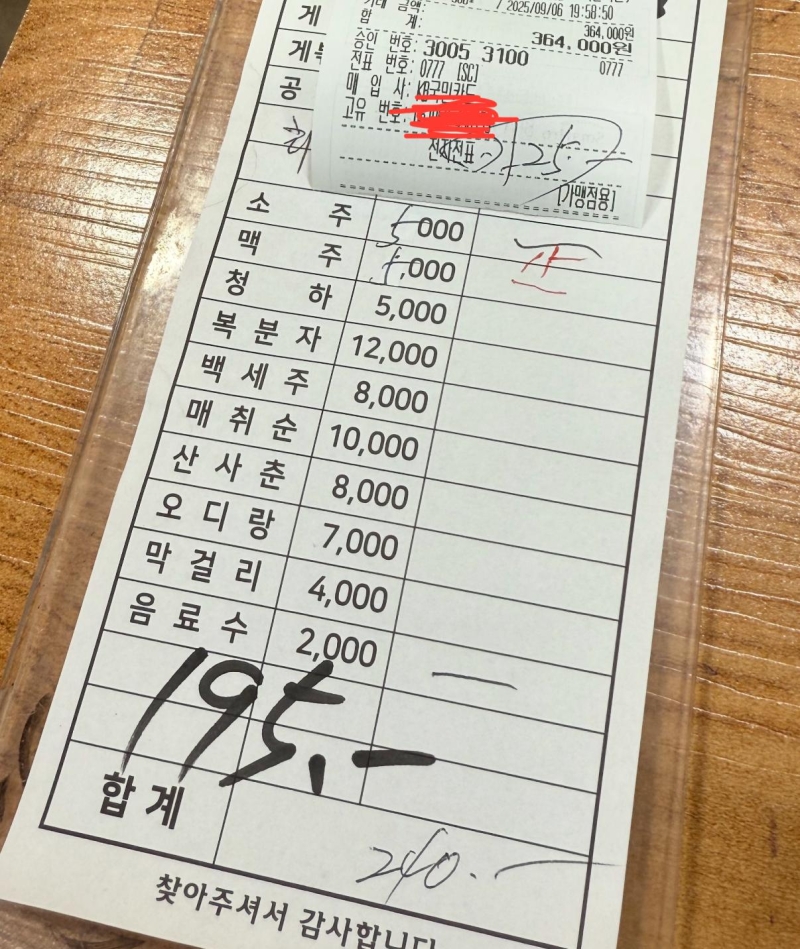 / 2025/09/06 19:58:50
거래 금액: 364,000원
합 계: 364,000원
승인 번호: 3005 3100
전표 번호: 0777 [SC] 0777
매 입 사: KB국민카드
고유 번호:
전자전표 125.-
[가맹점용]
게
게
공
소 주 5000
맥 주 5,000
청 하 5,000
복 분 자 12,000
백 세 주 8,000
매 취 순 10,000
산 사 춘 8,000
오 디 랑 7,000
막 걸 리 4,000
음 료 수 2,000 一
195.-
합 계
240.-
찾아주셔서 감사합니다